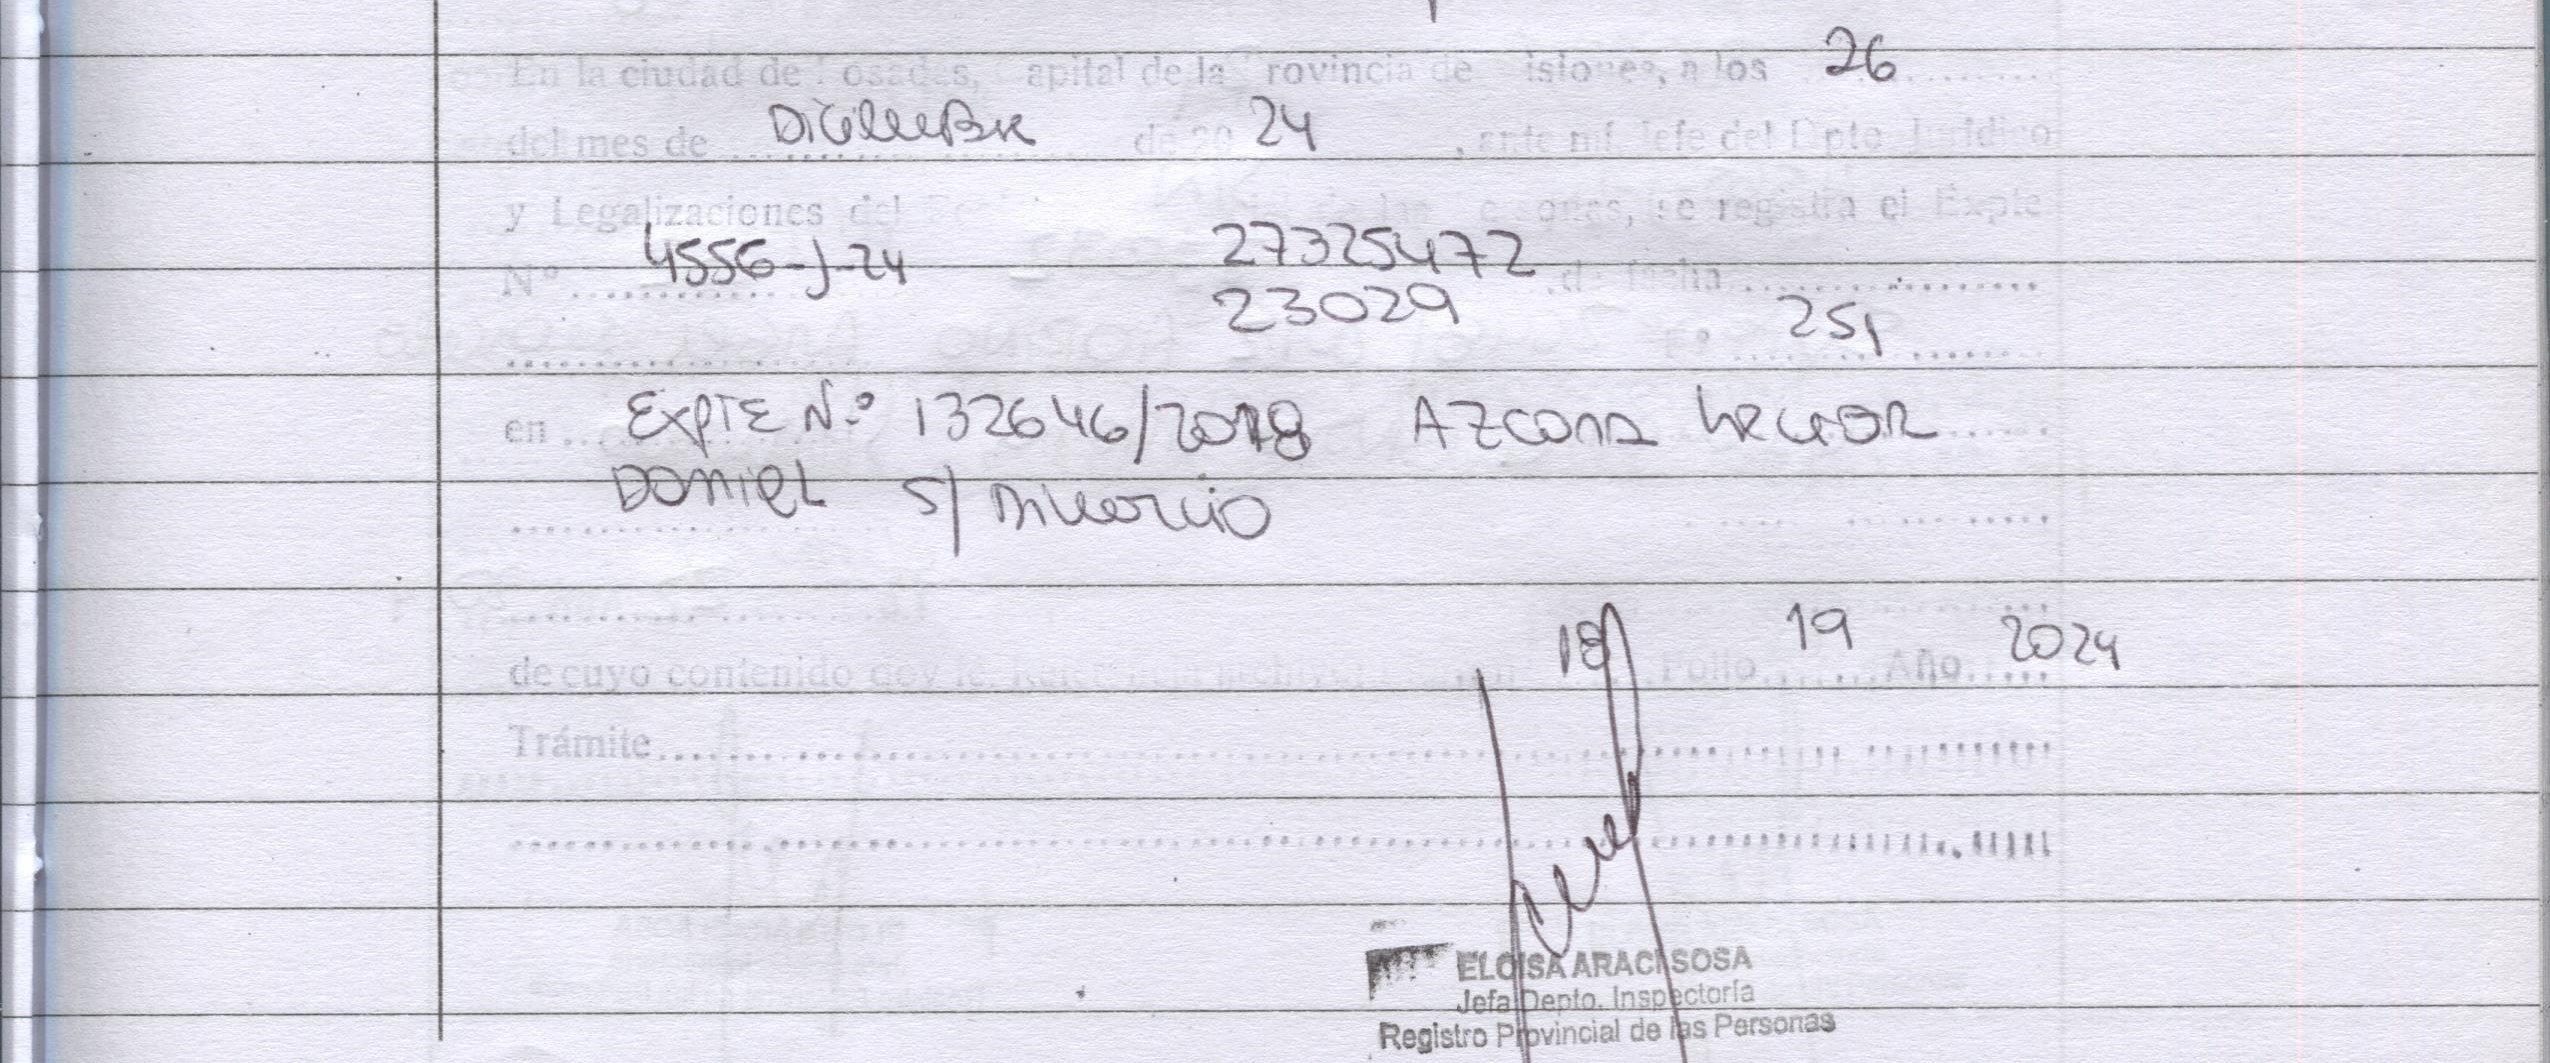 En la ciudad de Posadas, Capital de la Provincia de Misiones, a los 26
del mes de Diciembre de 20 24, ante mí Jefe del Dpto Jurídico
y Legalizaciones del se registra el Expte
Nº 4556-J-24 27325472 de fecha
23029 Fº 251
en Expte Nº 132646/2018 Azcona Hector
Daniel s/ Divorcio
de cuyo contenido doy fe. 18 Folio 19 Año 2024
Trámite
ELOISA ARACI SOSA
Jefa Depto. Inspectoría
Registro Provincial de las Personas